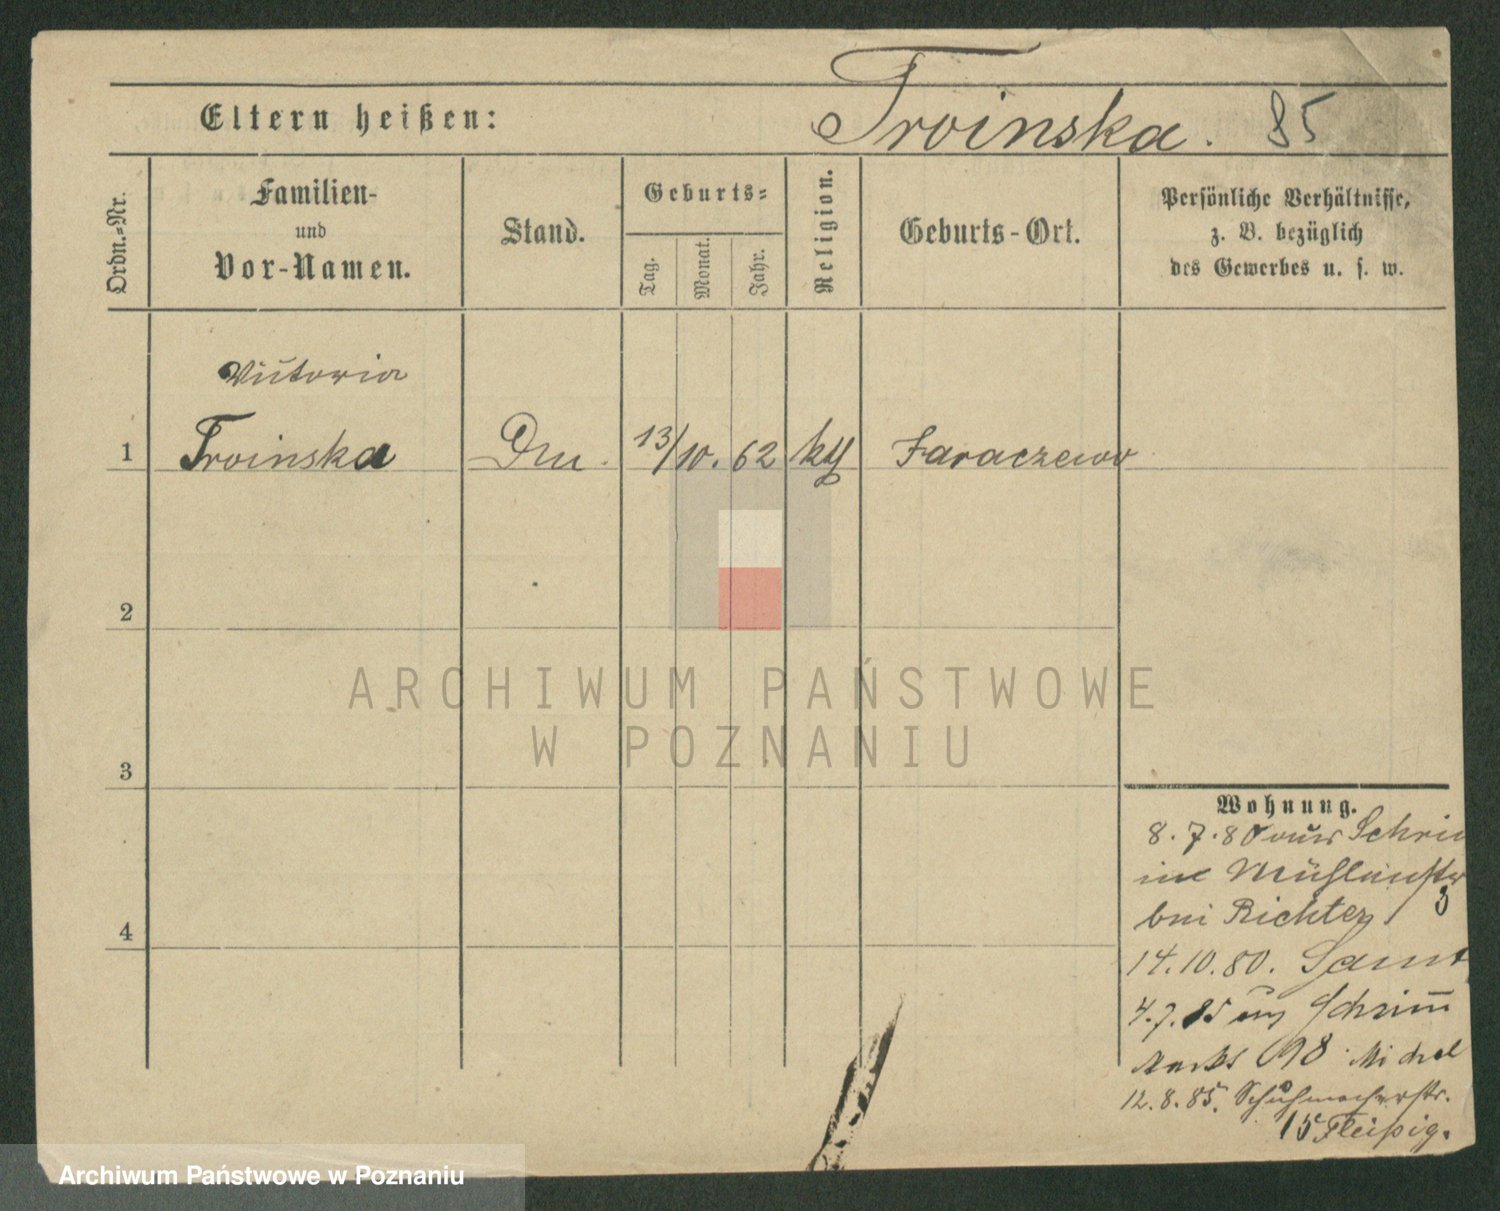 Troinska. 85
Eltern heißen:
Ordn.-Nr.
Familien-
und
Vor-Namen.
Stand.
Geburts-
Tag.
Monat.
Jahr.
Religion.
Geburts-Ort.
Persönliche Verhältnisse,
z. B. bezüglich
des Gewerbes u. s. w.
Victoria
1 Troinska 13/10. 62 kth Jaraczewo
2
3
4
ARCHIWUM PAŃSTWOWE
W POZNANIU
Wohnung.
8. 7. 80 aus Schrim
Mühlenstr
bei Richter 3
14. 10. 80.
4. 7. 85 Schrimm
Markt 98 Michel
12. 8. 85. Schuhmacherstr.
15 Fleißig.
Archiwum Państwowe w Poznaniu